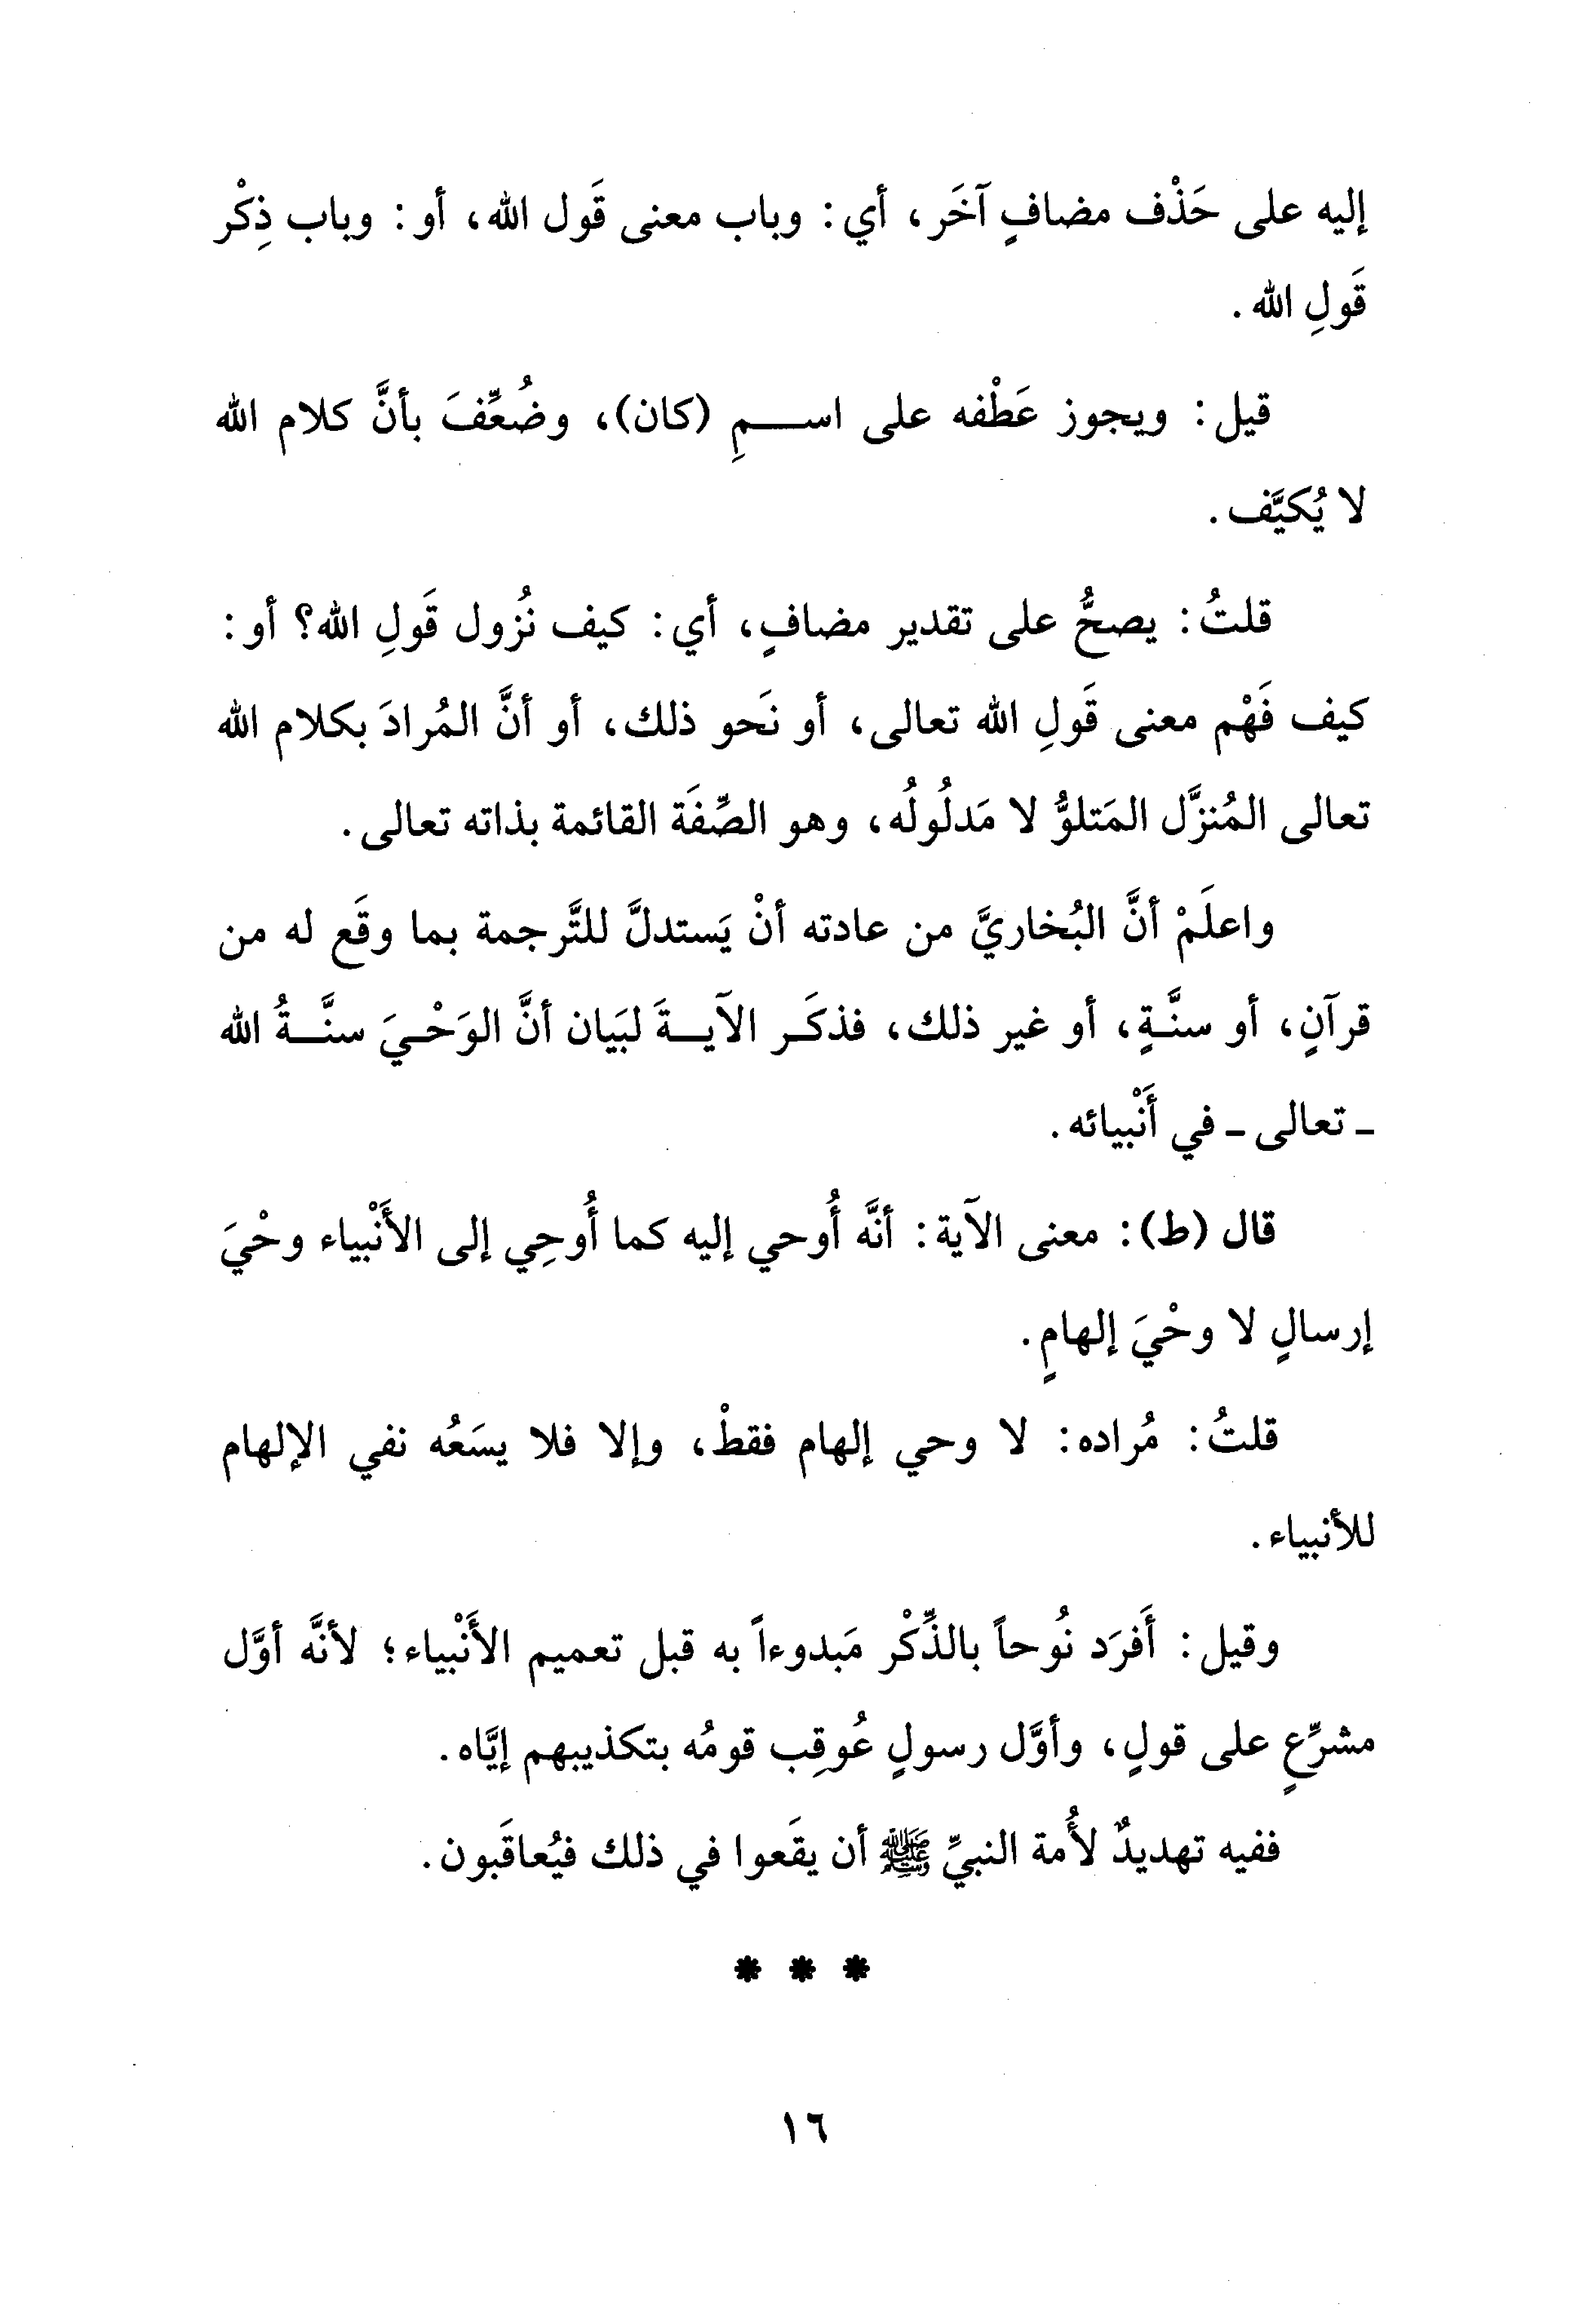 إليه على حَذْف مضافٍ آخَر، أي: وباب معنى قَول الله، أو: وباب ذِكْر
قَولِ الله.
قيل: ويجوز عَطْفه على اســـمِ (كان)، وضُعِّفَ بأنَّ كلام الله
لا يُكيَّف.
قلتُ: يصحُّ على تقدير مضافٍ، أي: كيف نُزول قَولِ الله؟ أو:
كيف فَهْم معنى قَولِ الله تعالى، أو نَحو ذلك، أو أنَّ المُرادَ بكلام الله
تعالى المُنزَّل المَتلوُّ لا مَدلُولُه، وهو الصِّفَة القائمة بذاته تعالى.
واعلَمْ أنَّ البُخاريَّ من عادته أنْ يَستدلَّ للتَّرجمة بما وقَع له من
قرآنٍ، أو سنَّـةٍ، أو غير ذلك، فذكَـر الآيـــةَ لبَيان أنَّ الوَحْـيَ سنَّـــةُ الله
ـ تعالى ـ في أَنْبيائه.
قال (ط): معنى الآية: أنَّه أُوحي إليه كما أُوحِي إلى الأَنْبياء وحْيَ
إرسالٍ لا وحْيَ إلهامٍ.
قلتُ: مُراده: لا وحي إلهام فقطْ، وإلا فلا يسَعُه نفي الإلهام
للأنبياء.
وقيل: أَفرَد نُوحاً بالذِّكْر مَبدوءاً به قبل تعميم الأَنْبياء؛ لأنَّه أوَّل
مشرِّعٍ على قولٍ، وأوَّل رسولٍ عُوقِب قومُه بتكذيبهم إيَّاه.
ففيه تهديدٌ لأُمة النبيِّ ﷺ أن يقَعوا في ذلك فيُعاقَبون.
* * *
١٦